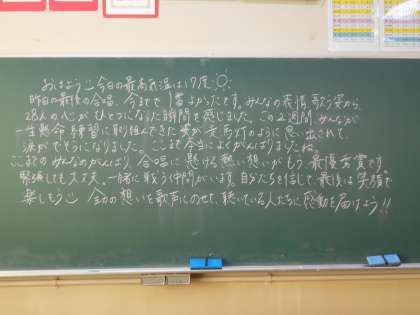 おはよう 今日の最高気温は17度
昨日の最後の合唱、今までで1番よかったです。みんなの表情、歌う姿から、
28人の心がひとつになった瞬間を感じました。この2週間、みんなが
一生懸命練習に取り組んできた姿が走馬灯のように思い出されて、
涙がでそうになりました。ここまで本当によくがんばりましたね。
ここまでのみんなのがんばり、合唱に懸ける熱い想いがもう最優秀賞です。
緊張しても大丈夫。一緒に戦う仲間がいます。自分たちを信じて、最後は笑顔で
楽しもう 全力の想いを歌声にのせて、聴いている人たちに感動を届けよう!!